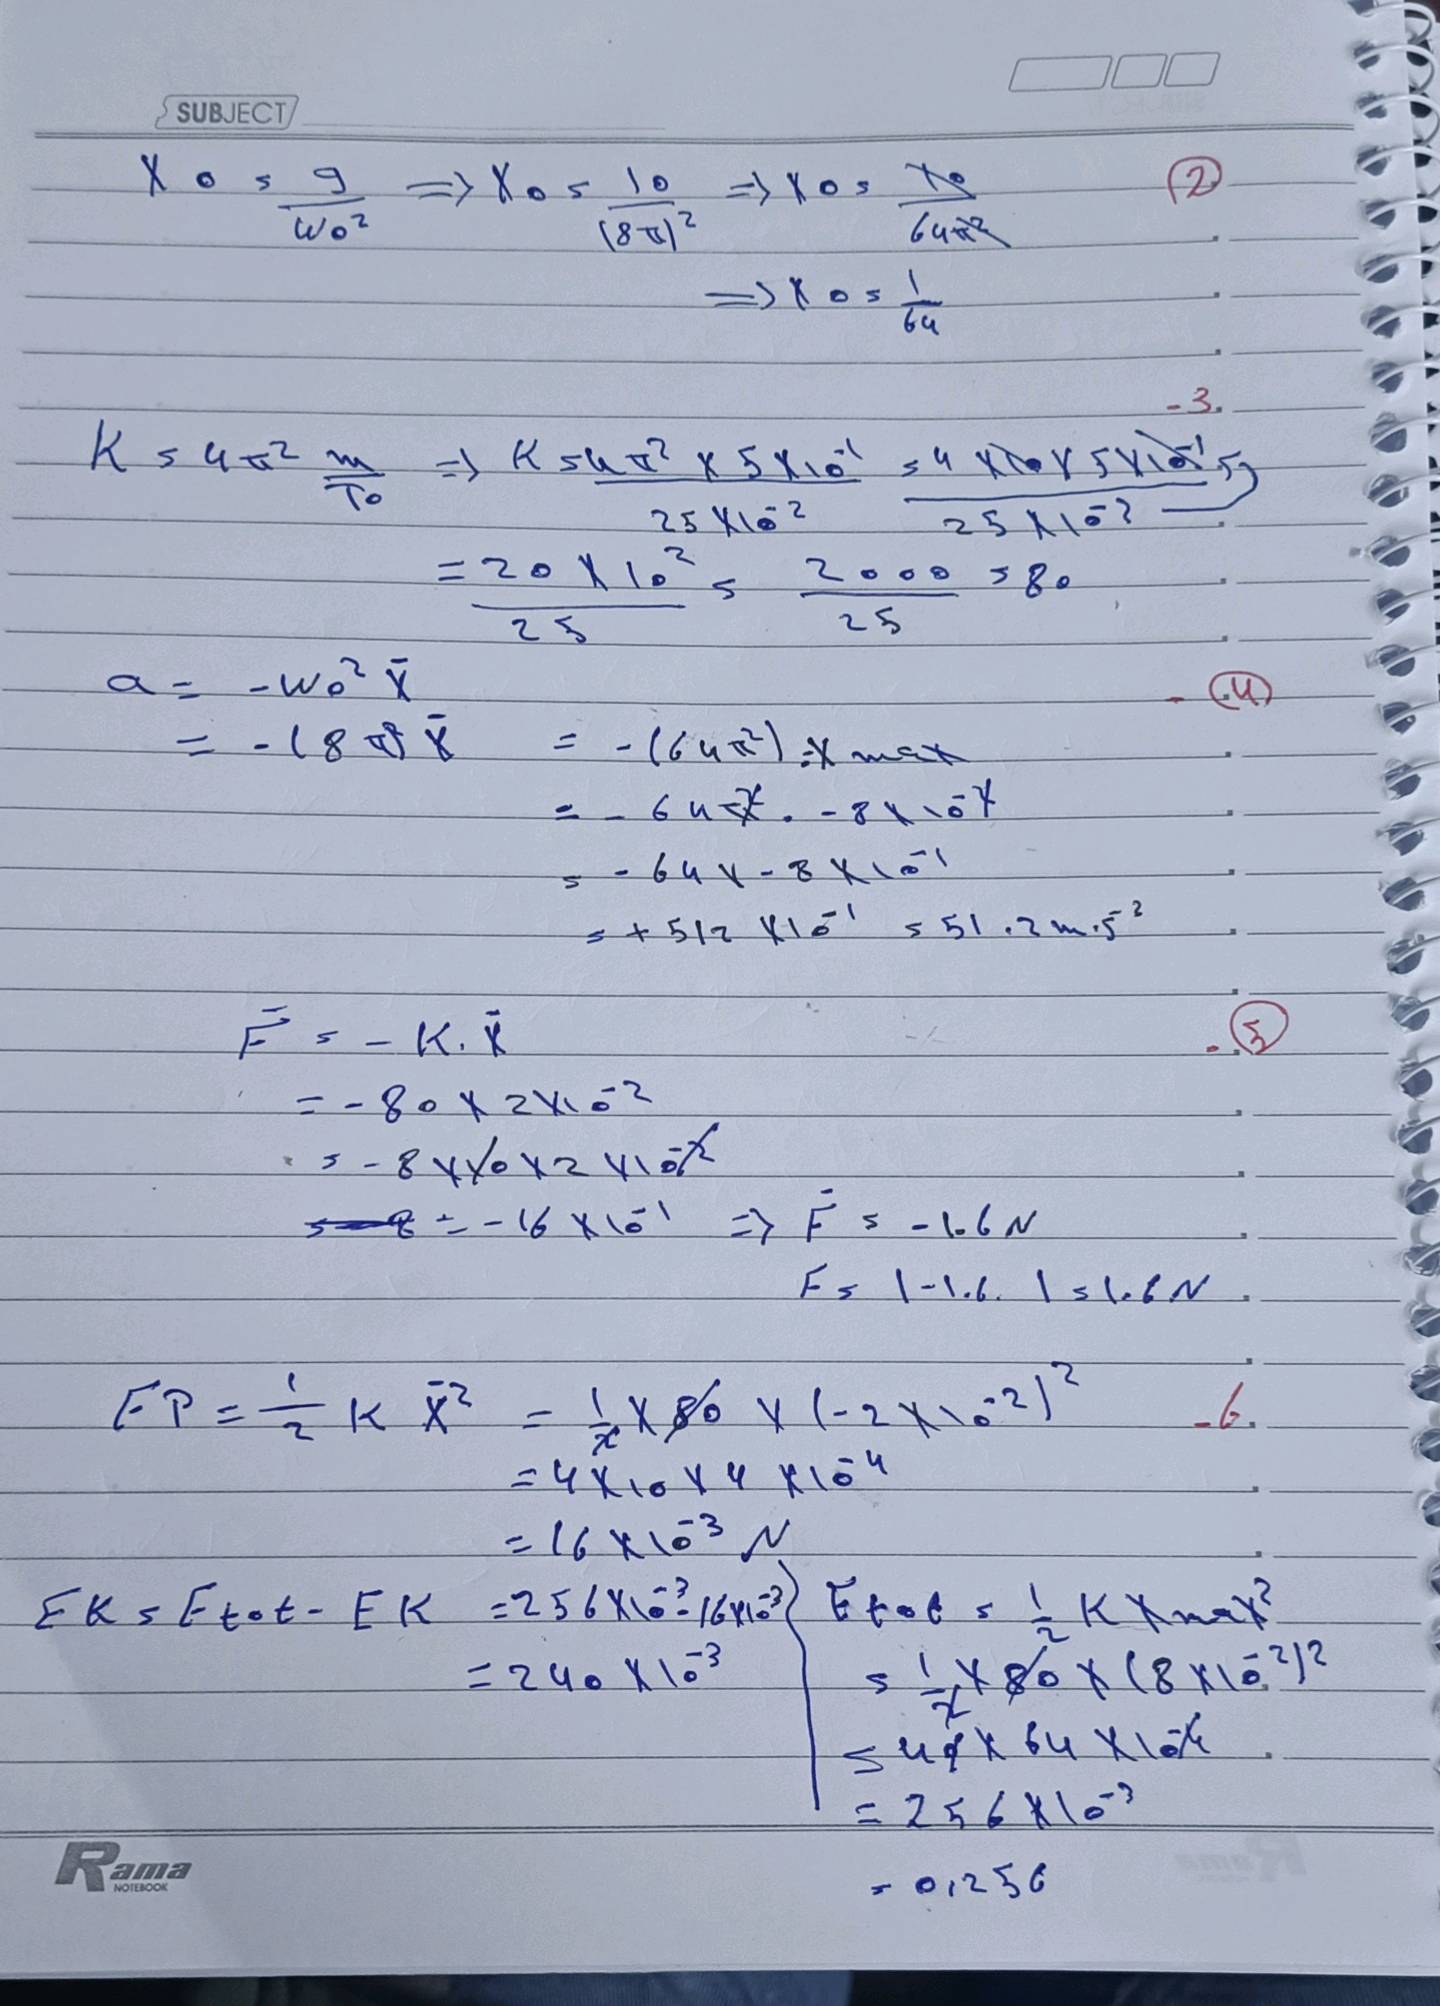 SUBJECT
X0 = g/W0² => X0 = 10/(8π)² => X0 = 10/64π² (2)
=> X0 = 1/64
-3.
K = 4π² m/T0 => K = 4π² × 5×10⁻¹ / 25×10⁻² = 4×10×5×10⁻¹ / 25×10⁻²
= 20×10² / 25 = 2000/25 = 80
a = -W0² x̄ - (4)
= -(8π)² x̄ = -(64π²) . X max
= - 64π² . -8×10⁻²
= - 64 × -8×10⁻¹
= + 512 ×10⁻¹ = 51.2 m.s⁻²
F̄ = - K . x̄ - (5)
= - 80 × 2×10⁻²
= - 8×10×2×10⁻²
= -16×10⁻¹ => F̄ = -1.6 N
F = |-1.6.| = 1.6 N
EP = 1/2 K x̄² = 1/2 × 80 × (-2×10⁻²)² -6.
= 4×10×4×10⁻⁴
= 16×10⁻³ N
EK = Etot - EK = 256×10⁻³ - 16×10⁻³
= 240×10⁻³
Etot = 1/2 K Xmax²
= 1/2 × 80 × (8×10⁻²)²
= 40 × 64 × 10⁻⁴
= 256×10⁻³
= 0,256
Rama
NOTEBOOK